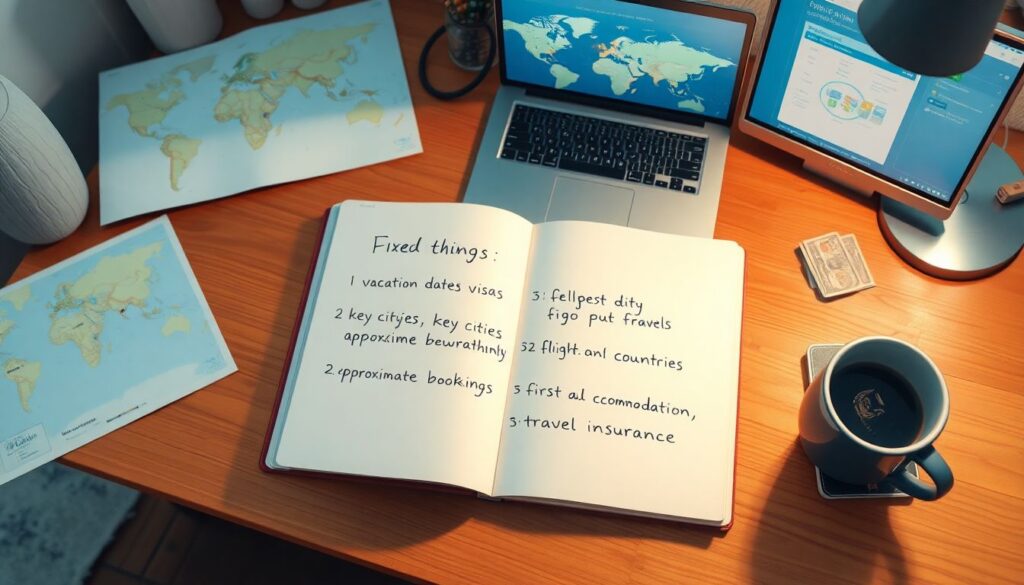 Fixed things:
1 vacation dates visas
2 key cityes, key cities
appoxıime bewrathinly
2. approximate bookings
3: fellpest dity
figo put travels
32 flight. anl countries
3 first al ccomnodation,
3. travel insurance